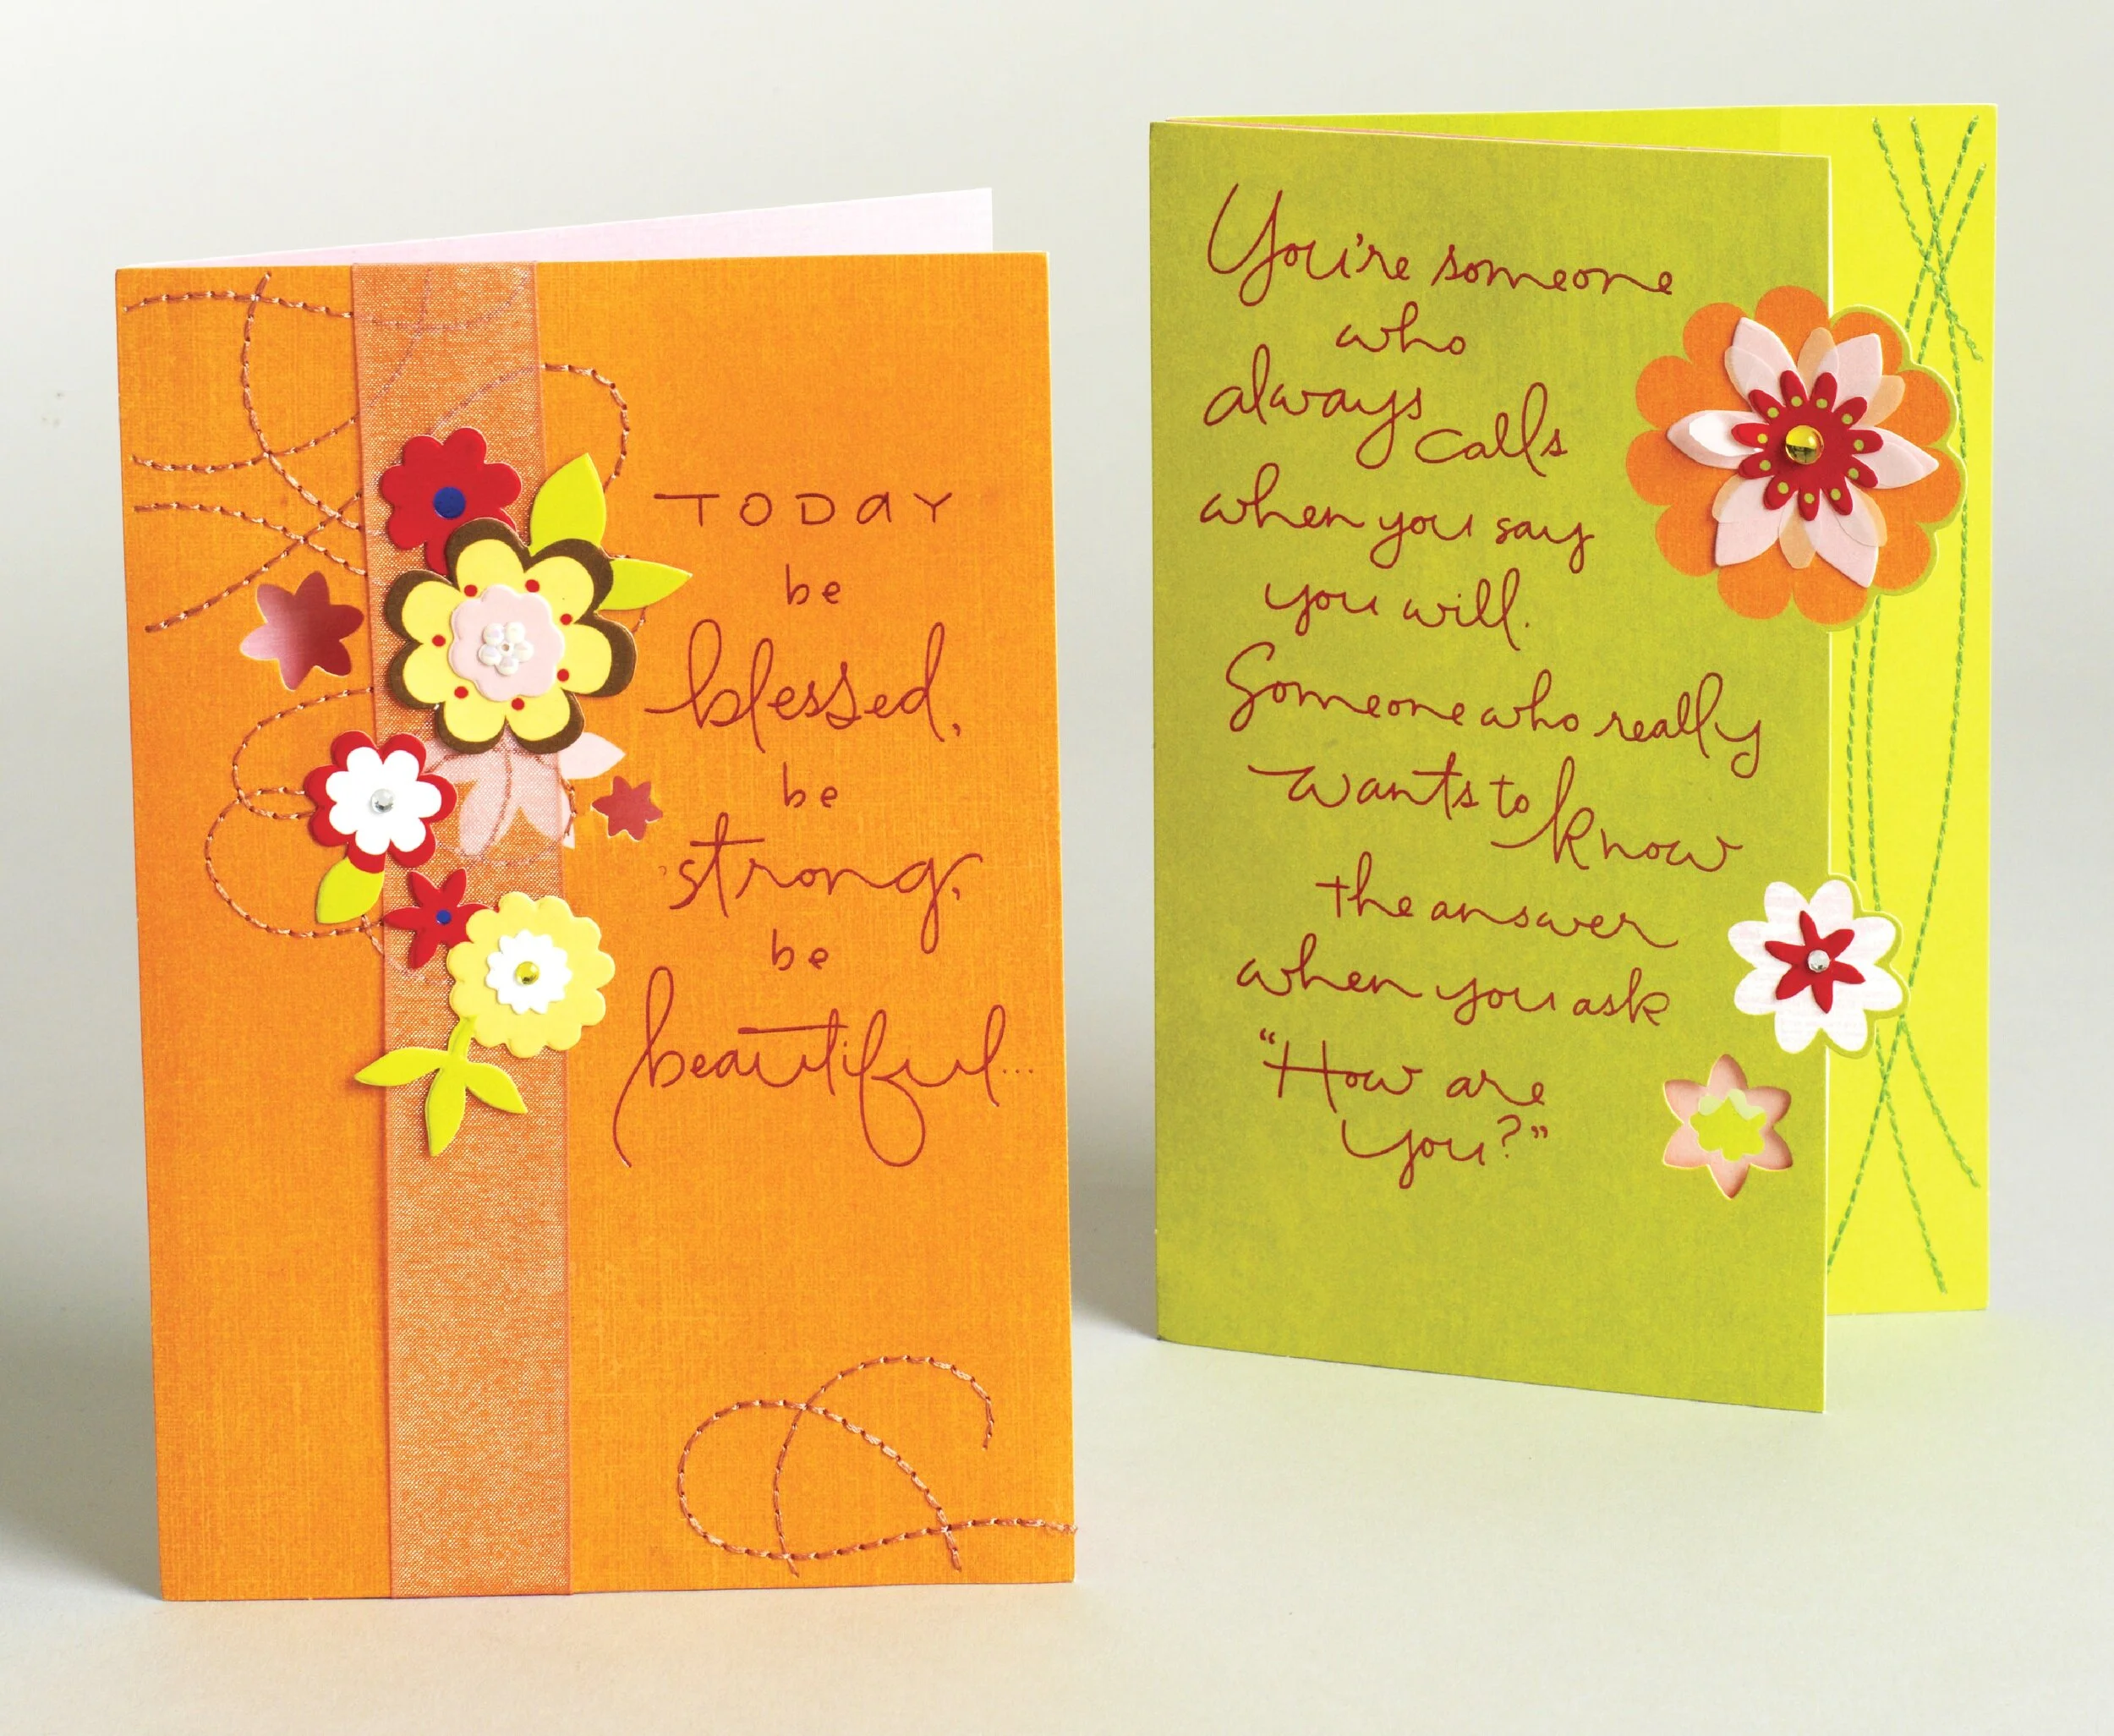 TODAY
be
blessed,
be
strong,
be
beautiful...
You're someone
who
always calls
when you say
you will.
Someone who really
wants to know
the answer
when you ask
“How are
you?”